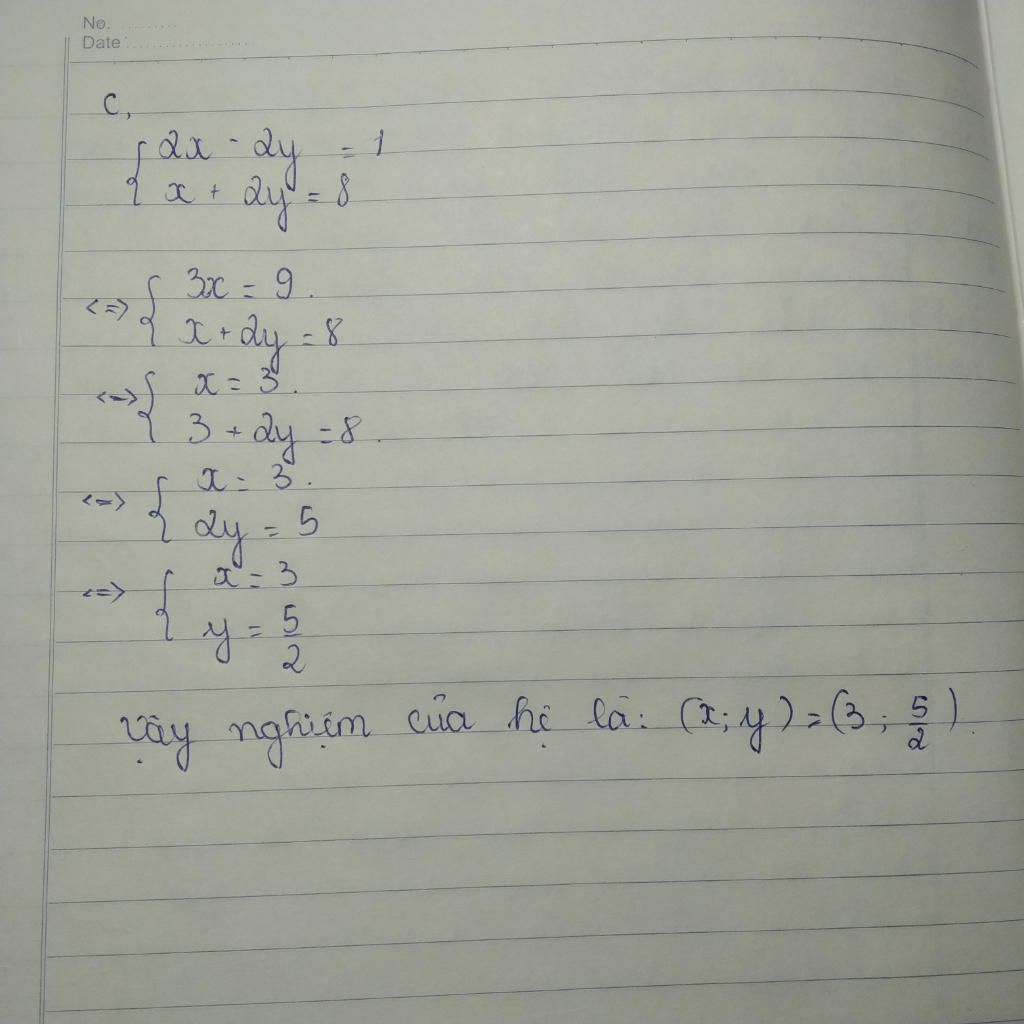 No. ..........
Date ....................
c,
{ 2x - 2y = 1
x + 2y = 8
<=> { 3x = 9.
x + 2y = 8
<=> { x = 3.
3 + 2y = 8.
<=> { x = 3.
2y = 5
<=> { x = 3
y = 5/2
Vậy nghiệm của hệ là: (x; y) = (3; 5/2).